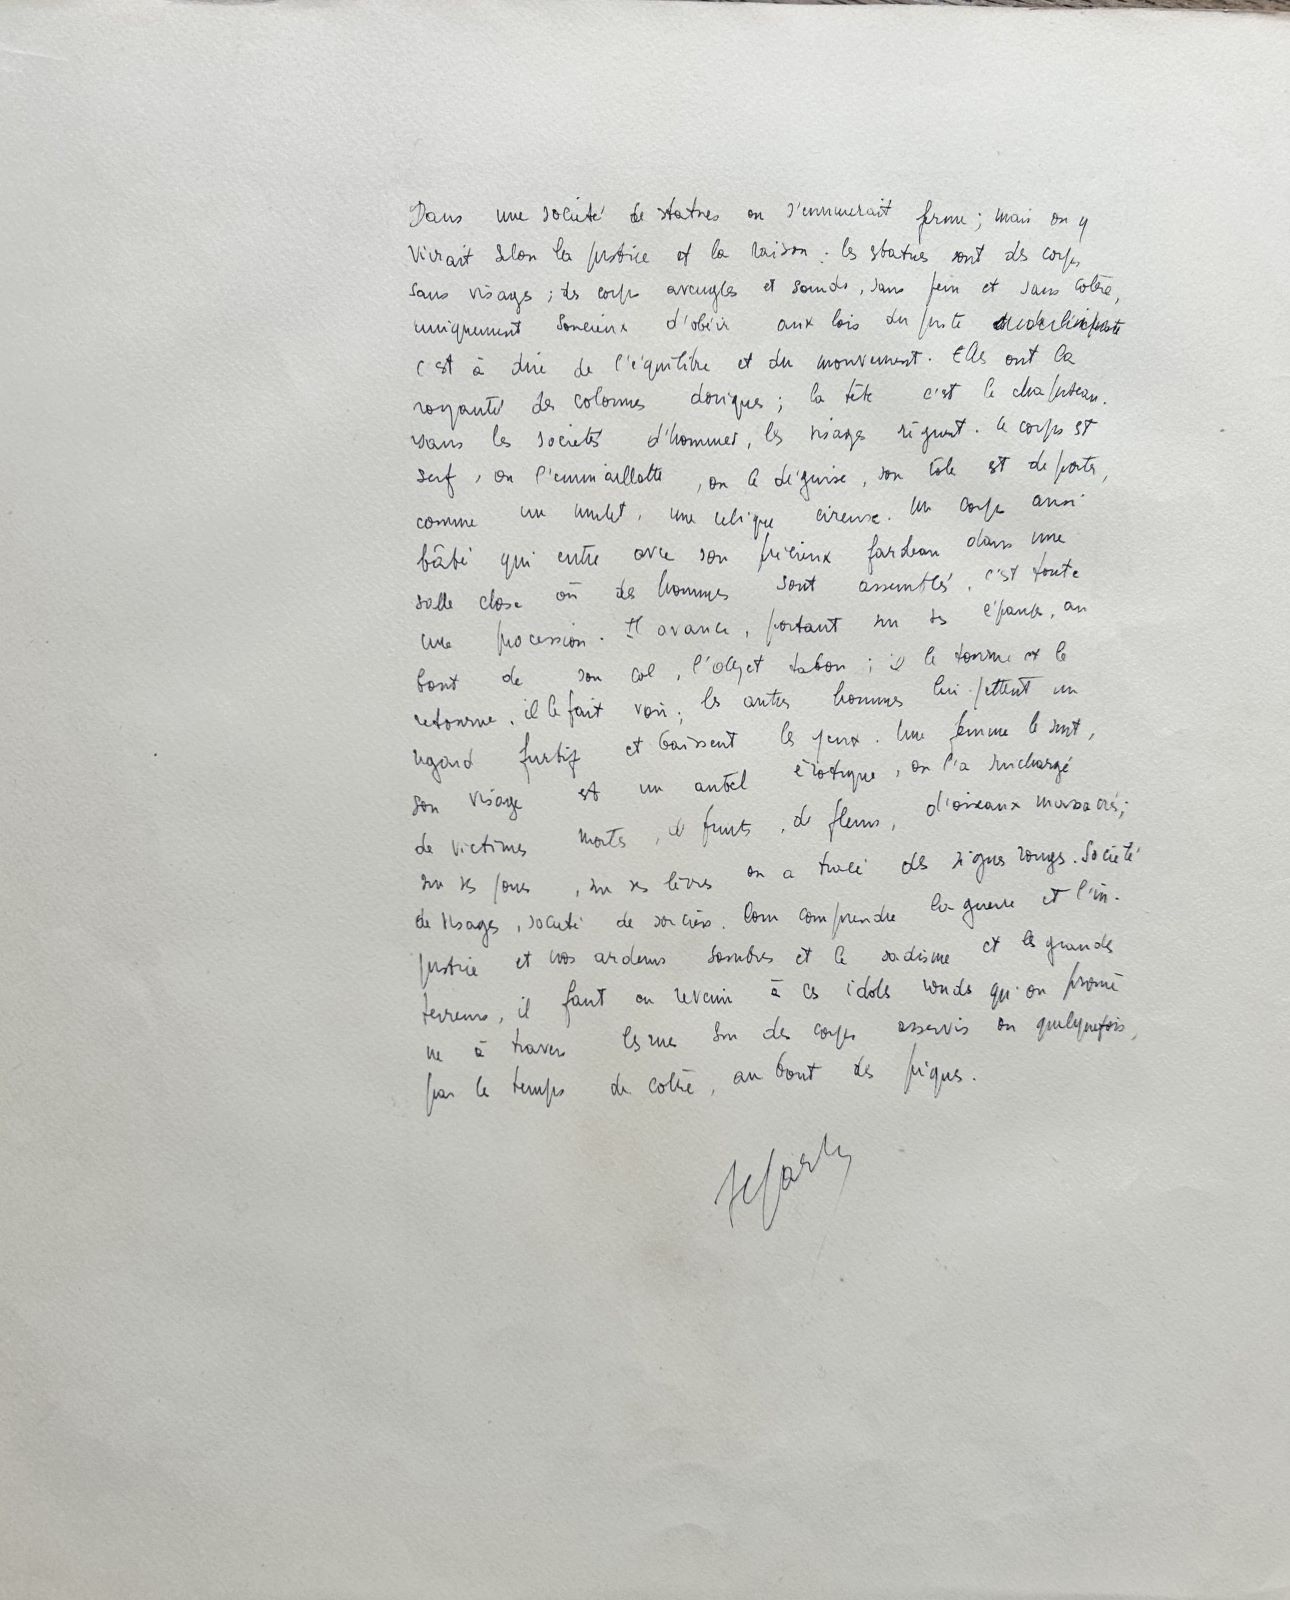 Dans une société de statues on s'ennuierait ferme ; mais on y
vivrait selon la justice et la raison : les statues sont des corps
sans visages ; des corps aveugles et sourds, sans peur et sans colère,
uniquement soucieux d'obéir aux lois du juste
c'est à dire de l'équilibre et du mouvement. Elles ont la
royauté des colonnes doriques ; la tête c'est le chapiteau.
Dans les sociétés d'hommes, les visages règnent. Le corps est
serf, on l'emmaillotte, on le déguise, son rôle est de porter,
comme un mulet, une relique cireuse. Un corps ainsi
bâté qui entre avec son précieux fardeau dans une
salle close où des hommes sont assemblés, c'est toute
une procession. Il avance, portant sur ses épaules, au
bout de son col, l'objet tabou ; il le tourne et le
retourne, il le fait voir ; les autres hommes lui jettent un
regard furtif et baissent les yeux. Une femme le suit,
son visage est un autel érotique, on l'a surchargé
de victimes mortes, de fruits, de fleurs, d'oiseaux massacrés ;
sur ses joues, sur ses lèvres on a tracé des signes rouges. Société
de visages, société de sorciers. Pour comprendre la guerre et l'in-
justice et nos ardeurs sombres et le sadisme et les grandes
terreurs, il faut en revenir à ces idoles rondes qu'on promè
ne à travers les rues sur des corps asservis ou quelquefois,
par le temps de colère, au bout des piques.